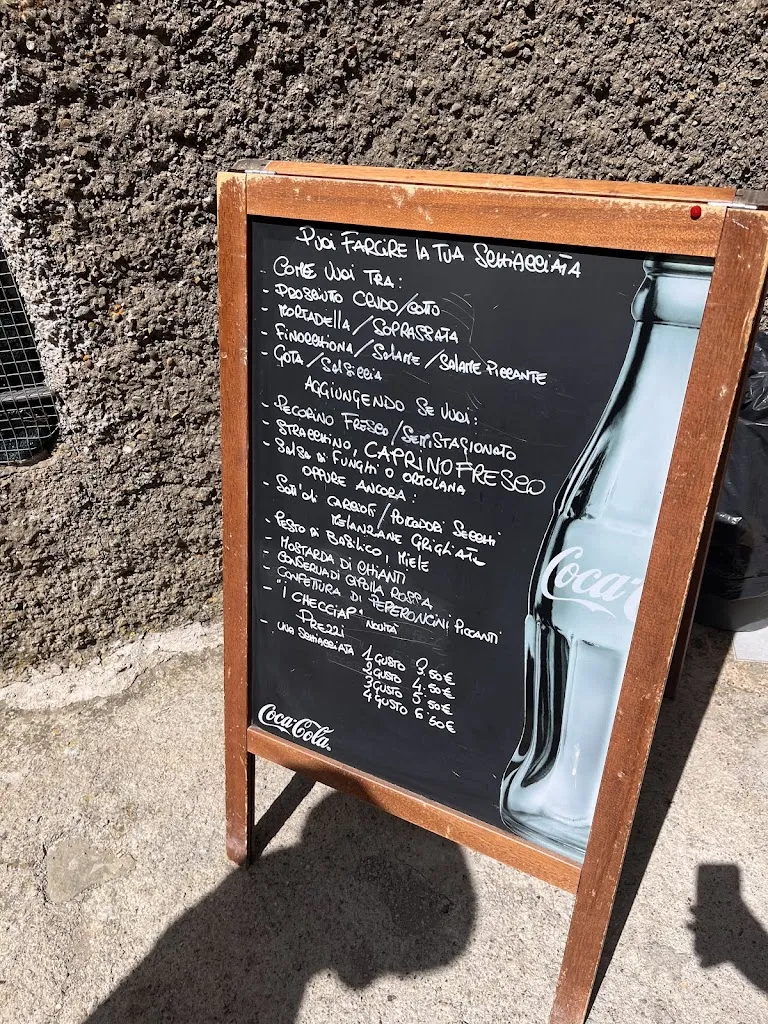 PUOI FARCIRE LA TUA SCHIACCIATA
- COME VUOI TRA:
- PROSCIUTTO CRUDO/COTTO
- MORTADELLA/SOPRASSATA
- FINOCCHIONA/SALAME/SALAME PICCANTE
- GOTA/SALSICCIA
AGGIUNGENDO SE VUOI:
- PECORINO FRESCO/SEMISTAGIONATO
- STRACCHINO, CAPRINO FRESCO
- SALSA DI FUNGHI O ORTOLANA
OPPURE ANCORA:
- SOTT'OLI CARCIOFI/POMODORI SECCHI
MELANZANE GRIGLIATE
- PESTO DI BASILICO, MIELE
- MOSTARDA DI CHIANTI
- CONSERVA DI CIPOLLA ROSSA
- CONFETTURA DI PEPERONCINI PICCANTI
- "I CHECCIAP" NOVITÀ
PREZZI
- UNA SCHIACCIATA 1 GUSTO 3.50€
2 GUSTO 4.50€
3 GUSTO 5.50€
4 GUSTO 6.50€
Coca-Cola
Coca-C